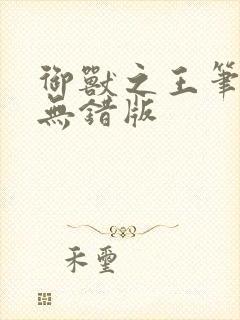 御獸之王筆
無錯版
禾璽